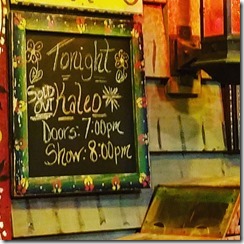 Tonight
Sold Out Kaleo
Doors: 7:00pm
Show: 8:00pm